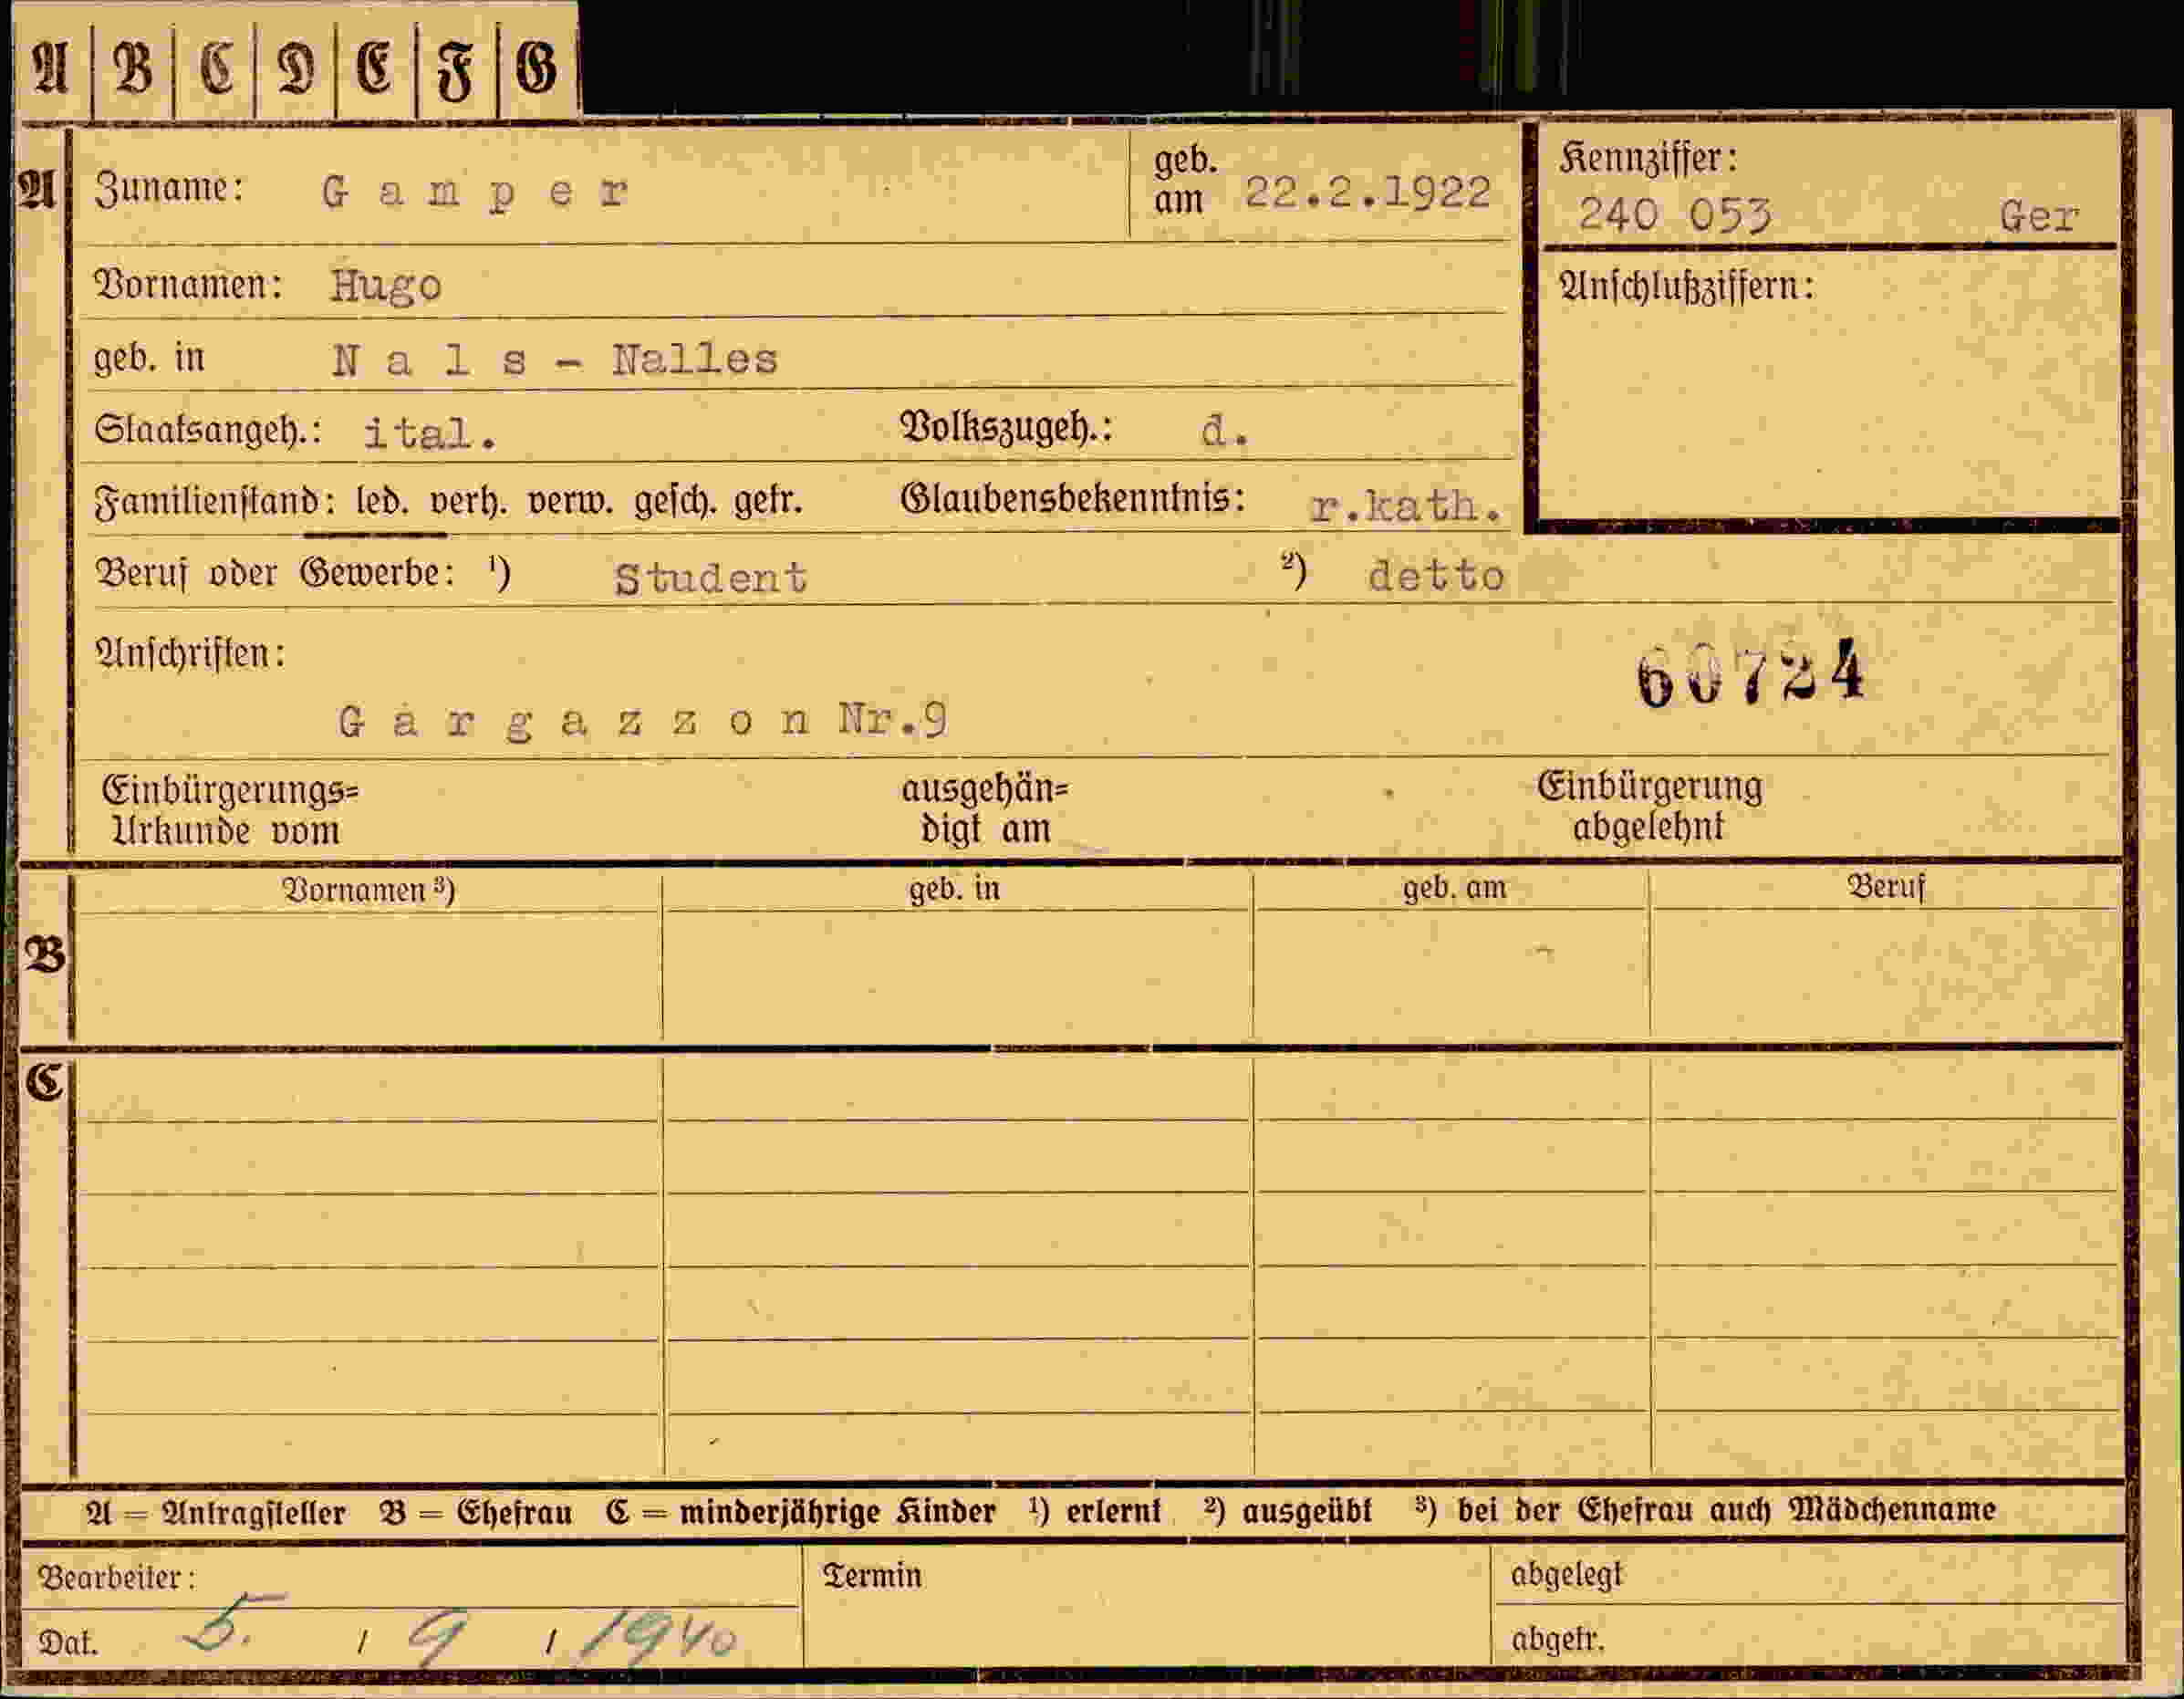 A B C D E F G
A Zuname: Gamper geb. am 22.2.1922 Kennziffer: 240 053 Ger
Vornamen: Hugo Anschlußziffern:
geb. in Nals - Nalles
Staatsangeh.: ital. Volkszugeh.: d.
Familienstand: led. verh. verw. gesch. getr. Glaubensbekenntnis: r.kath.
Beruf oder Gewerbe: ¹) Student ²) detto
Anschriften: 60724
Gargazzon Nr.9
Einbürgerungs= ausgehän= Einbürgerung
Urkunde vom digt am abgelehnt
Vornamen ³) geb. in geb. am Beruf
B
C
A = Antragsteller B = Ehefrau C = minderjährige Kinder ¹) erlernt ²) ausgeübt ³) bei der Ehefrau auch Mädchenname
Bearbeiter: Termin abgelegt
Dat. 5. / 9 / 1940 abgetr.